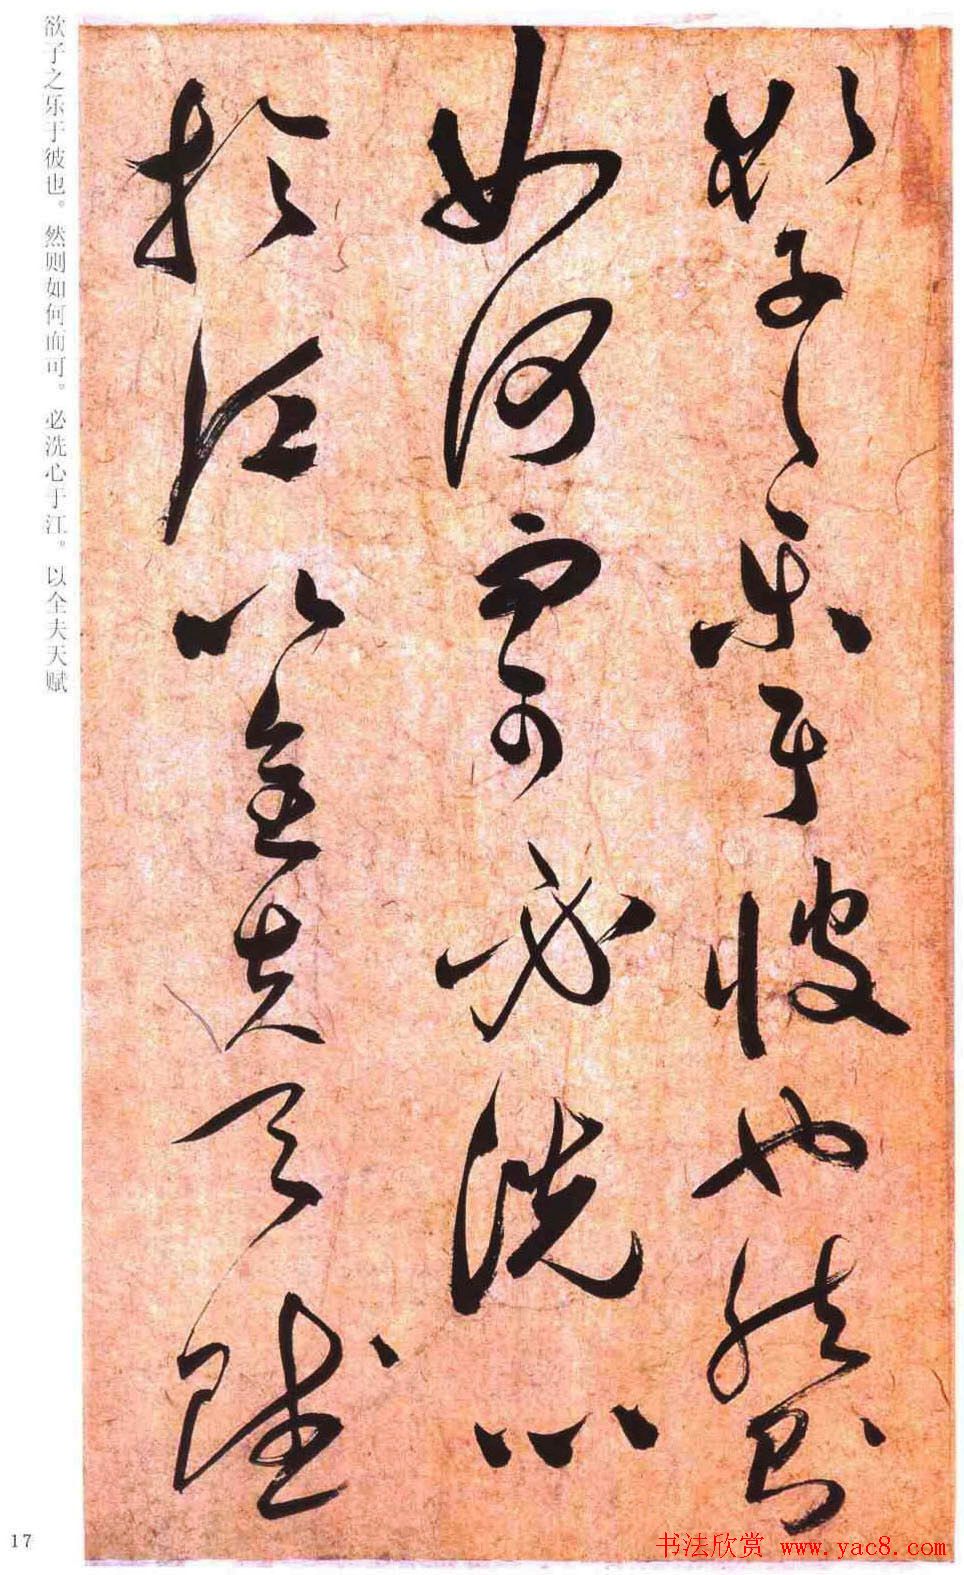 欲子之樂于彼也然則
如何而可必洗心
於江以全夫天賦
欲子之乐于彼也。然则如何而可。必洗心于江。以全夫天赋
17
书法欣赏 www.yac8.com